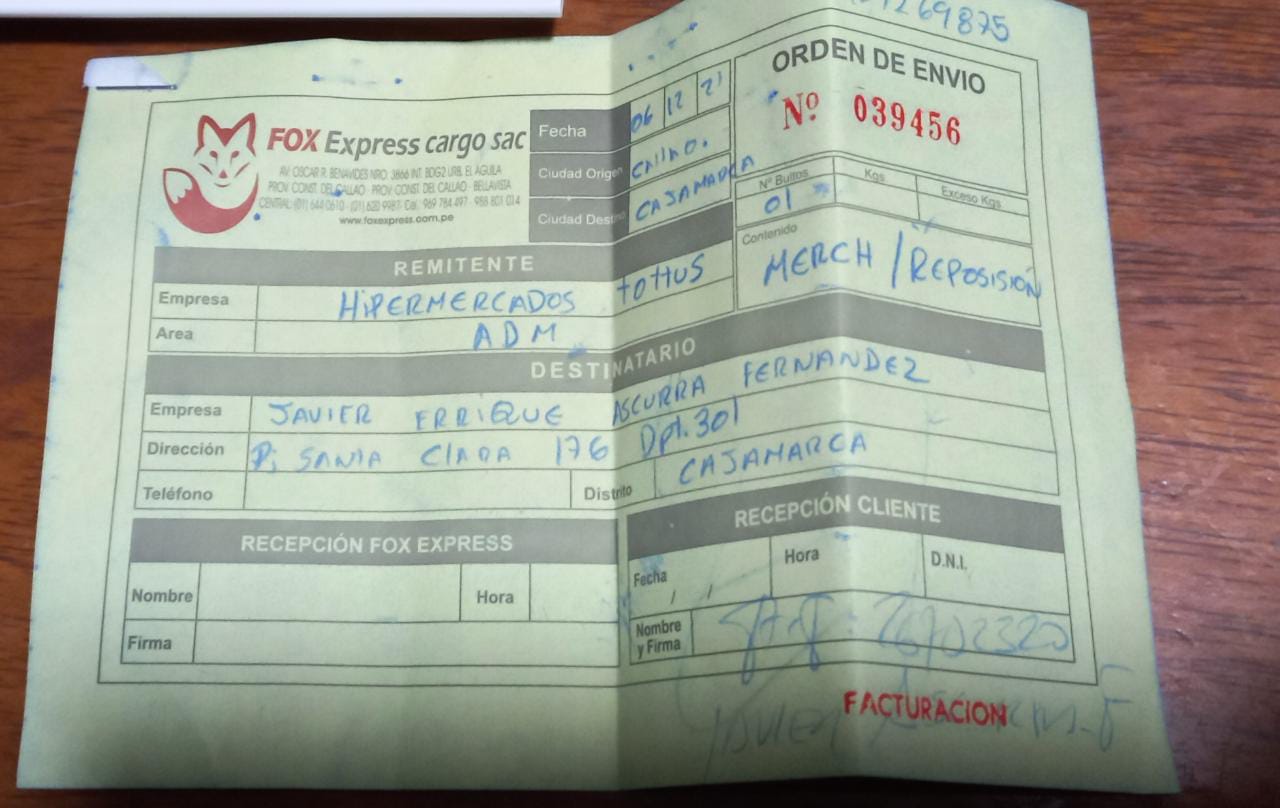 69875
ORDEN DE ENVIO
Nº 039456
FOX Express cargo sac
AV. OSCAR R. BENAVIDES NRO. 3866 INT. BDG2 URB. EL AGUILA
PROV. CONST. DEL CALLAO - PROV. CONST. DEL CALLAO - BELLAVISTA
CENTRAL: (01) 644 0610 - (01) 620 9987 Cel.: 969 784 497 - 988 801 014
www.foxexpress.com.pe
Fecha 06 12 21
Ciudad Origen CAllAO.
Ciudad Destino CAJAMARCA
Nº Bultos Kgs Exceso Kgs
01
Contenido
MERCH / REPOSISIÓN
REMITENTE
Empresa HIPERMERCADOS tottus
Area ADM
DESTINATARIO
Empresa JAVIER ERRIQUE ASCURRA FERNANDEZ
Dirección PJ SANTA CLARA 176 Dpt. 301
Teléfono Distrito CAJAMARCA
RECEPCIÓN FOX EXPRESS
Nombre Hora
Firma
RECEPCIÓN CLIENTE
Fecha / / Hora D.N.I.
Nombre y Firma
FACTURACION